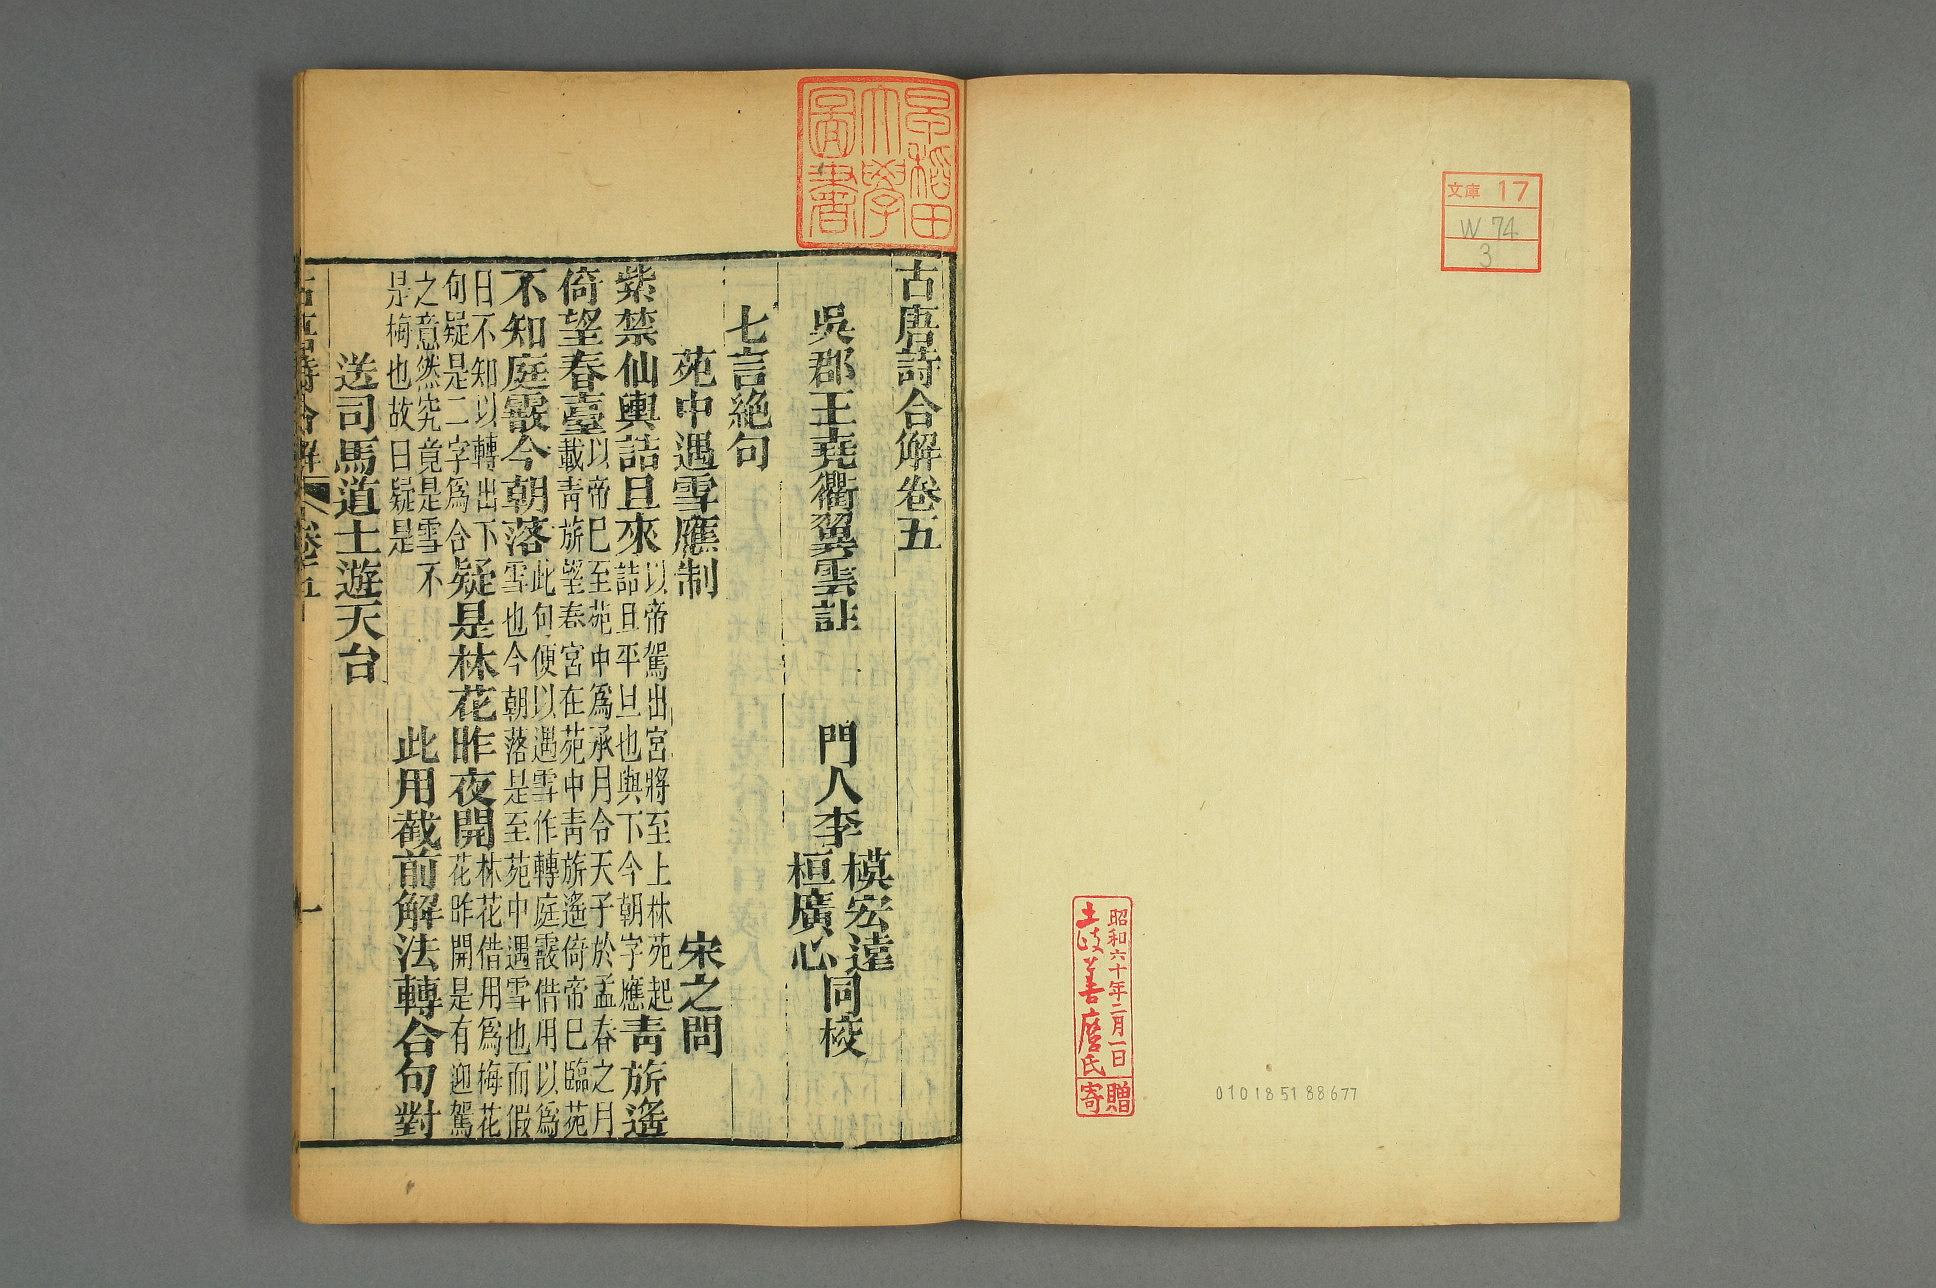 文庫 17
W 74
3
昭和六十年二月一日
土岐善麿氏
寄贈
010185188677
早稲田
大學
圖書
古唐詩合解卷五
吳郡王堯衢翼雲註　門人李模宏遠桓廣心同校
七言絕句
苑中遇雪應制　宋之問
紫禁仙輿詰旦來以帝駕出宮將至上林苑起詰旦平旦也與下今朝字應青旂遙
倚望春臺以帝巳至苑中爲承月令天子於孟春之月載青旂望春宮在苑中青旂遙倚帝巳臨苑
不知庭霰今朝落此句便以遇雪作轉庭霰借用以爲雪也今朝落是至苑中遇雪也而假
日不知以轉出下句疑是二字爲合疑是林花昨夜開林花借用爲梅花花昨開是有迎駕
之意然究竟是雪不是梅也故日疑是　此用截前解法轉合句對
送司馬道士遊天台
古唐詩合解　卷五　一